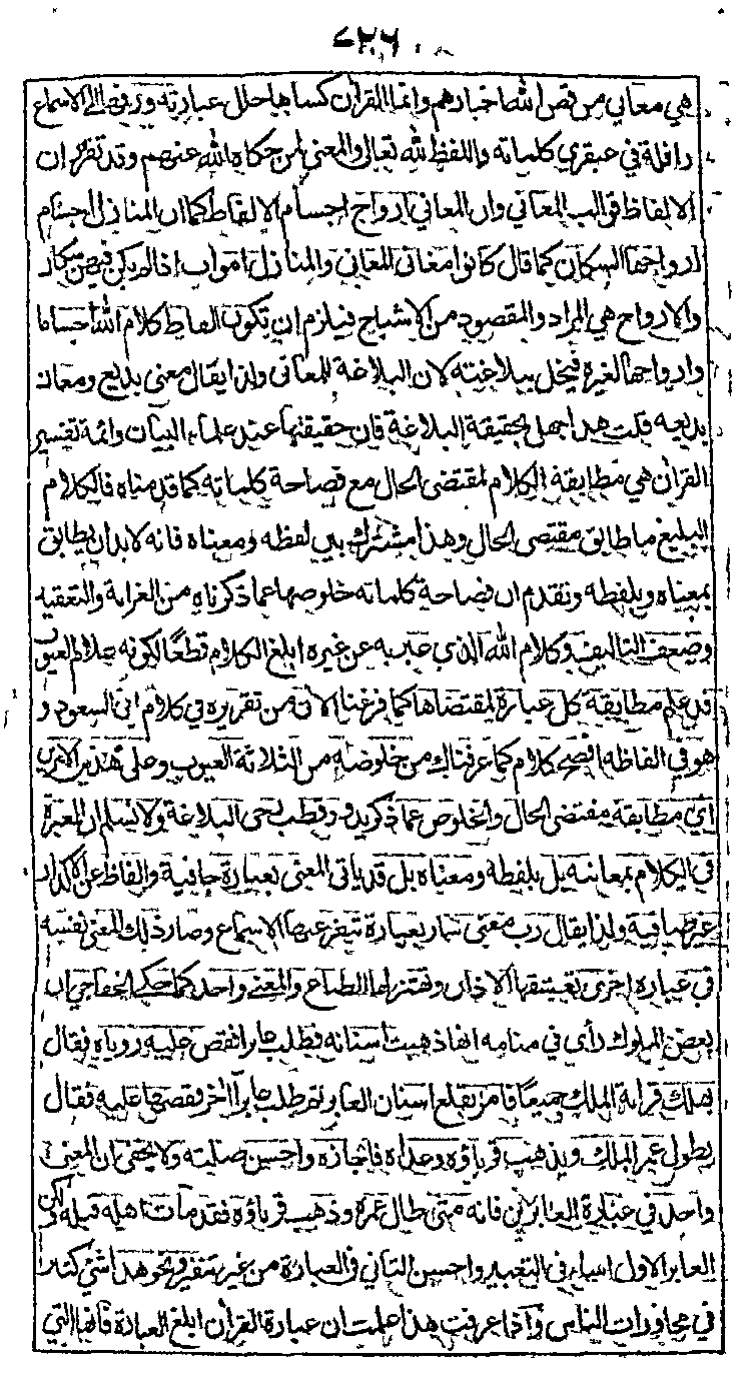 ٤٢٦
هي معاني من قص الله اخبارهم وانما القران كساها حلل عبارته وزفها الى الاسماع
رافلة في عبقري كلماته واللفظ لله تعالى والمعنى لمن حكاه الله عنهم وقد تقرر ان
الالفاظ قوالب المعاني وان المعاني ارواح اجسام الالفاظ كما ان المنازل اجسام
ارواحها السكان كما قال كانوا معاني المغاني والمنازل اموات اذا لم يكن فيهن سكان
والارواح هي المراد والمقصود من الاشباح فيلزم ان تكون الفاظ كلام الله اجساما
وارواحها لغيره فيخل ببلاغته لان البلاغة للمعاني ولذا يقال معنى بديع ومعان
بديعه قلت هذا جهل بحقيقة البلاغة فان حقيقتها عند علماء البيان وائمة تفسير
القران هي مطابقة الكلام لمقتضى الحال مع فصاحة كلماته كما قدمناه فالكلام
البليغ ما طابق مقتضى الحال وهذا مشترك بين لفظه ومعناه فانه لا بد ان يطابق
بمعناه وبلفظه وتقدم ان فصاحة كلماته خلوصها عما ذكرناه من الغرابة والتعقيد
وضعف التاليف وكلام الله الذي عبر به عن غيره ابلغ الكلام قطعًا لكونه علام الغيوب
قد علم مطابقة كل عبارة لمقتضاها كما فرغنا الان من تقريره في كلام ابي السعود و
هو في الفاظه افصح كلام كما عرفناك من خلوصه من الثلاثة العيوب وعلى هذين الامرين
اي مطابقة مقتضى الحال والخلوص عما ذكر يدور قطب رحى البلاغة ولا نسلم ان العبرة
في الكلام بمعانيه بل بلفظه ومعناه بل قد ياتي المعنى بعبارة جافية والفاظ عن الاكدار
غير صافية ولذا يقال رب معنى شار بعبارة تنفر عنها الاسماع وصار ذلك المعنى نفسه
في عبارة اخرى تعشقها الاذان وتهتز لها الطباع والمعنى واحد كما حكى الخفاجي ان
بعض الملوك رأى في منامه انها ذهبت اسنانه فطلب عابرا فقص عليه روياه فقال
يهلك قرابة الملك جميعًا فامر بقلع اسنان العابر ثم طلب عابرًا اخر فقصها عليه فقال
يطول عمر الملك ويذهب قرباؤه وعداه فاجازه واحسن صلته ولا يخفى ان المعنى
واحد في عبارة العابرين فانه متى طال عمره وذهب قرباؤه فقد مات اهله قبله لكن
العابر الاول اساء في التعبير واحسن الثاني في العبارة من غير تنفير ونحو هذا شئ كثير
في محاورات الناس واذا عرفت هذا علمت ان عبارة القران ابلغ العبارة فانها التي